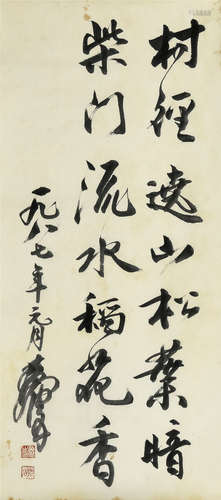 村径遶山松葉暗
柴门流水稻花香
一九八七年元月